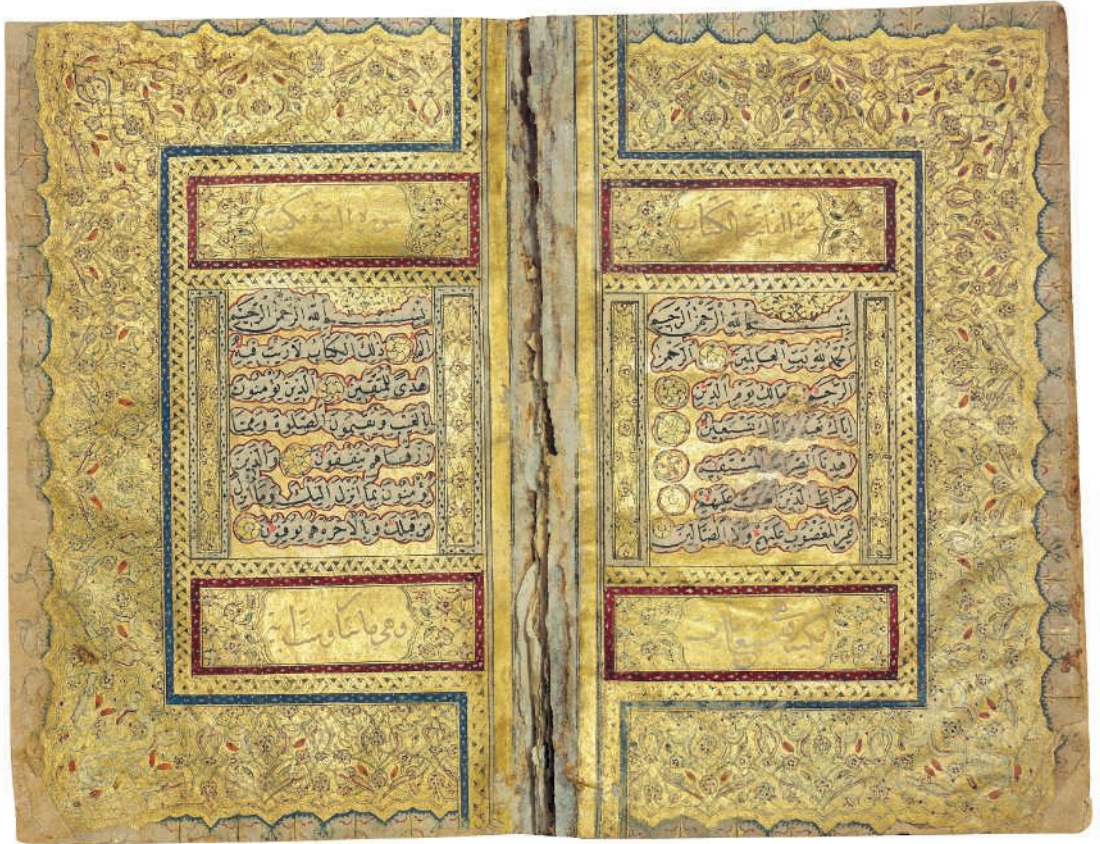 سورة الفاتحة الكتاب
بِسْمِ اللّٰهِ الرَّحْمٰنِ الرَّحِيمِ
اَلْحَمْدُ لِلّٰهِ رَبِّ الْعَالَمِينَ الرَّحْمٰنِ
الرَّحِيمِ مَالِكِ يَوْمِ الدِّينِ
اِيَّاكَ نَعْبُدُ وَاِيَّاكَ نَسْتَعِينُ
اِهْدِنَا الصِّرَاطَ الْمُسْتَقِيمَ
صِرَاطَ الَّذِينَ اَنْعَمْتَ عَلَيْهِمْ
غَيْرِ الْمَغْضُوبِ عَلَيْهِمْ وَلَا الضَّالِّينَ
سورة البقرة
بِسْمِ اللّٰهِ الرَّحْمٰنِ الرَّحِيمِ
الٓمٓ ذٰلِكَ الْكِتَابُ لَا رَيْبَ فِيهِ
هُدًى لِلْمُتَّقِينَ الَّذِينَ يُؤْمِنُونَ
بِالْغَيْبِ وَيُقِيمُونَ الصَّلٰوةَ وَمِمَّا
رَزَقْنَاهُمْ يُنْفِقُونَ وَالَّذِينَ
يُؤْمِنُونَ بِمَا اُنْزِلَ اِلَيْكَ وَمَا اُنْزِلَ
مِنْ قَبْلِكَ وَبِالْاٰخِرَةِ هُمْ يُوقِنُونَ
وهي مائتا